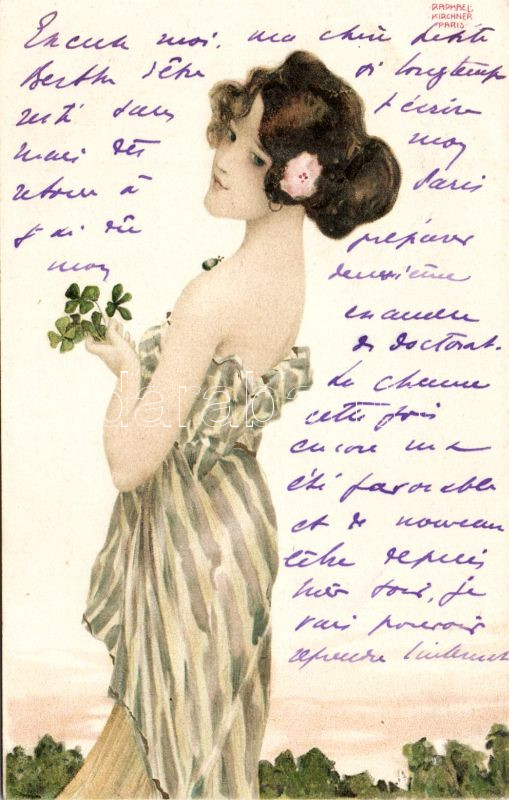 RAPHAEL
KIRCHNER
PARIS
Excuse moi, ma chère petite
Berthe d'être si longtemps
resté sans t'écrire
mais dès mon
retour à Paris
j'ai dû préparer
mon deuxième
examen
de doctorat.
La chance
cette fois
encore m'a
été favorable
et de nouveau
libre depuis
hier soir, je
vais pouvoir
reprendre
darabanth